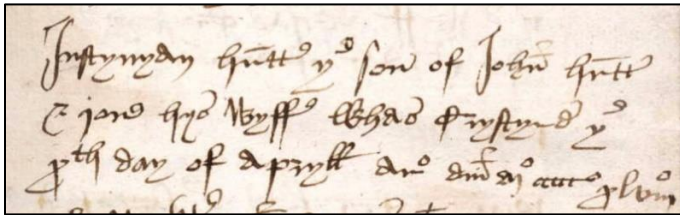 Justynyan hūtt yᵉ son of John hūtt
& jone hys wyff whas crystynyd yᵉ
xth day of apryll anº dnī mº cccccº